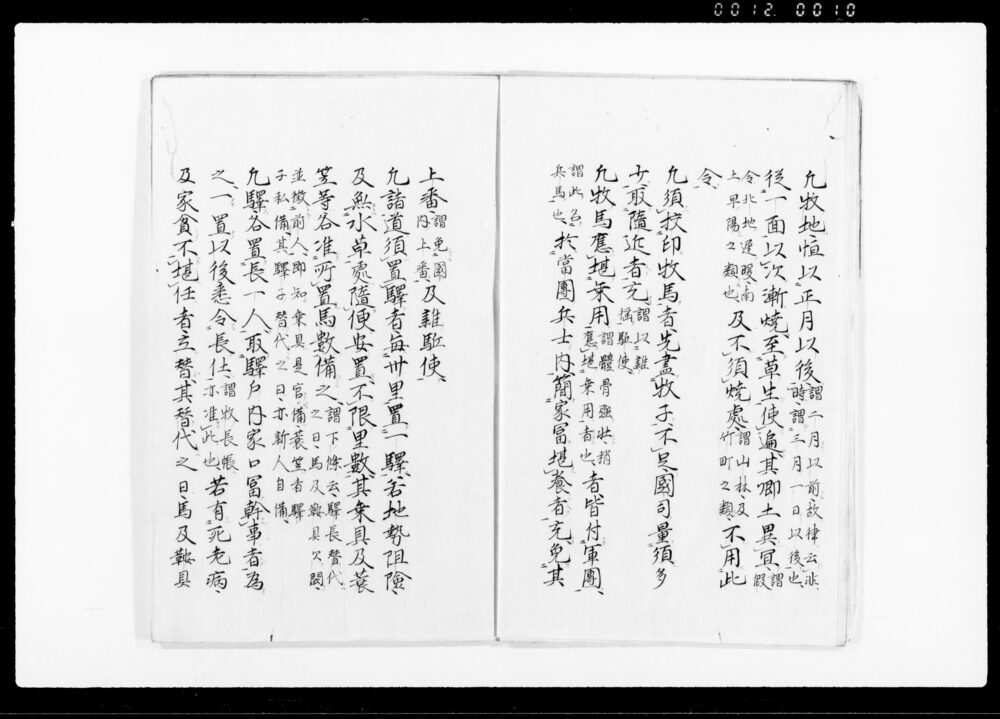 0012 0010
凡牧地恒以正月以後謂二月以前故律云非時謂三月一日以後也
従一面以次漸焼至草生使遍其郷土異冝謂假
令北地遅暖南上早陽之類也及不須焼處謂山林及竹町之類不用此
令
凡須挍印牧馬者先盡牧子不足國司量須多
少取隨近者充謂以雜徭駈使
凡牧馬應堪乗用謂體骨強壮稍應堪乗用者也者皆付軍團
謂此名兵馬也於當團兵士内簡家冨堪養者充免其
上番謂免國内上番及雜駈使
凡諸道須置驛者毎卅里置一驛若地勢阻險
及無水草處隨便安置不限里數其乗具及蓑
笠等各准所置馬數備之謂下條云驛長替代之日馬及鞍具欠闕
並徴前人即知乗具是官備蓑笠者驛子私備其驛子替代之日亦新人自備
凡驛各置長一人取驛戸内家口冨幹事者為
之一置以後悉令長仕謂牧長帳亦准此也若有死老病
及家貧不堪任者立替其替代之日馬及鞍具